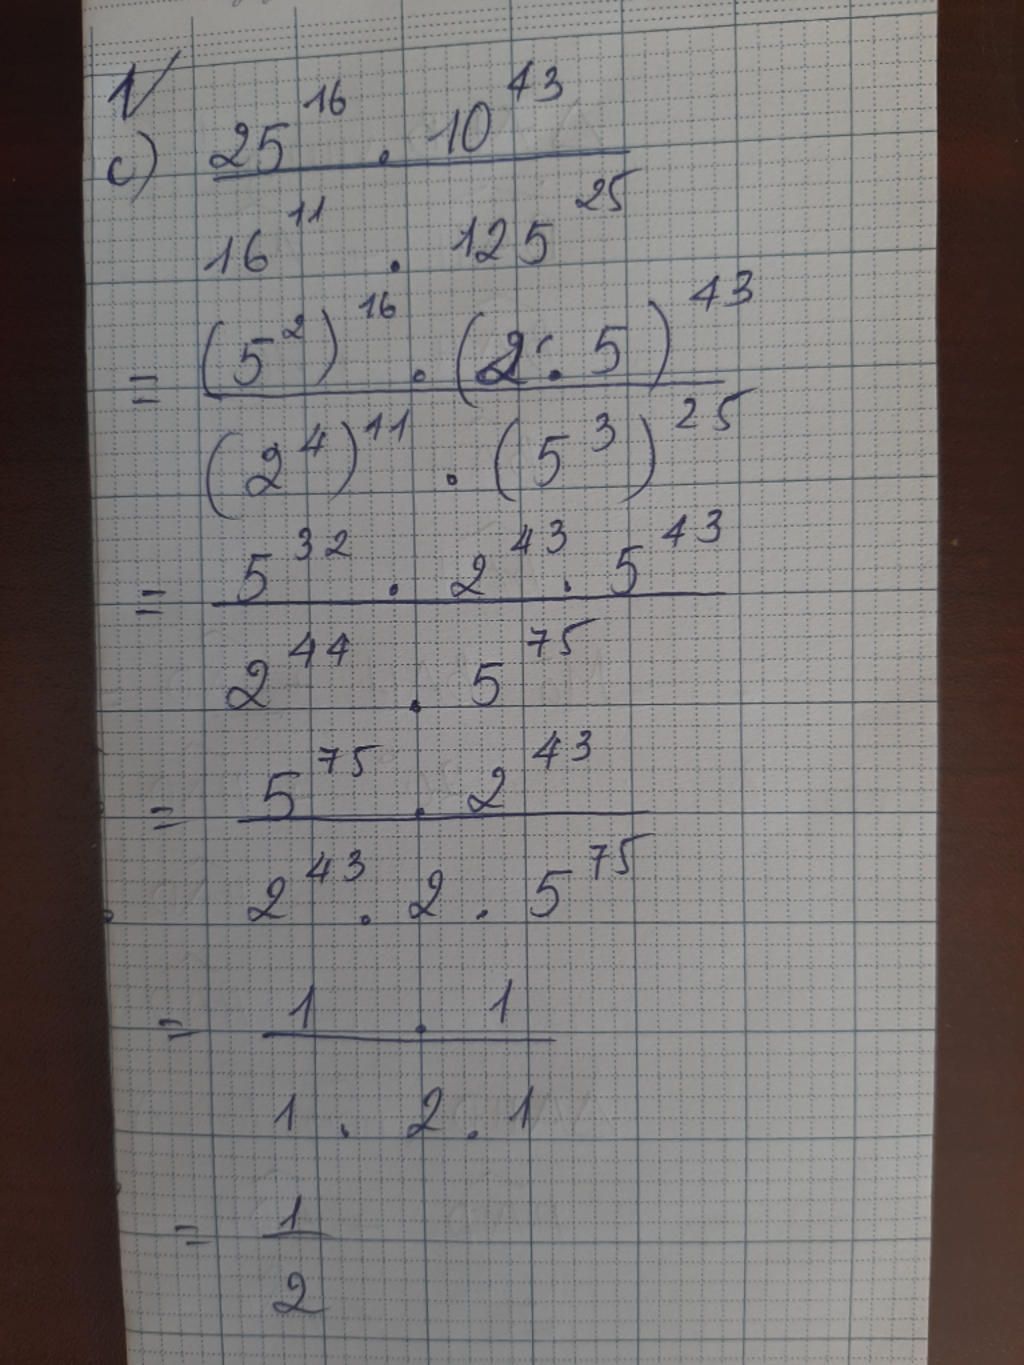 1/
c) 25^16 . 10^43
16^11 . 125^25
= (5^2)^16 . (2 . 5)^43
(2^4)^11 . (5^3)^25
= 5^32 . 2^43 . 5^43
2^44 . 5^75
= 5^75 . 2^43
2^43 . 2 . 5^75
= 1 . 1
1 . 2 . 1
= 1
2